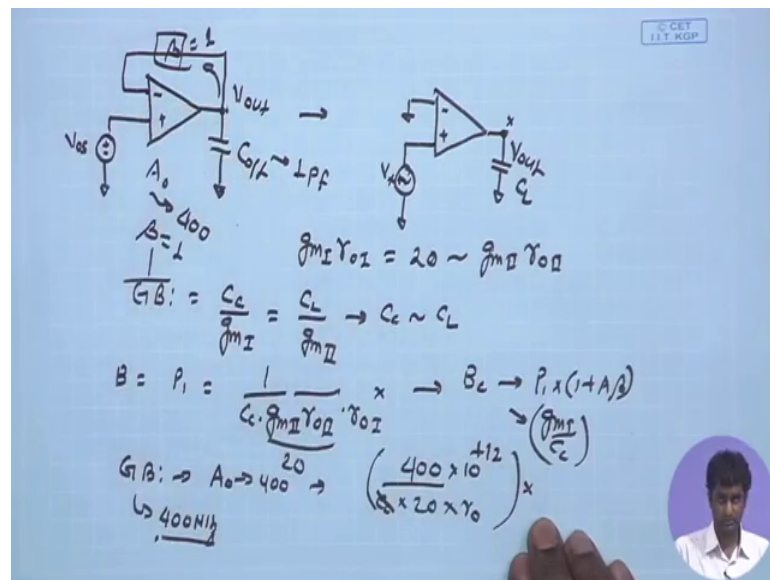 © CET
I.I.T. KGP
β = 1
Vout →
Vos
- 
+
C0/L → 1pf
A0
→ 400
β = 1
-
+
x
Vout
CL
gmI roI = 20 ~ gmII roII
1/GB : = Cc/gmI = CL/gmII → Cc ~ CL
B = P1 = 1/(Cc · gmII roII · roI) x → Bc → P1 x (1+Aβ)
20
→ (gmI/Cc)
GB: → A0 → 400 → (400 x 10^+12 / x 20 x r0) x